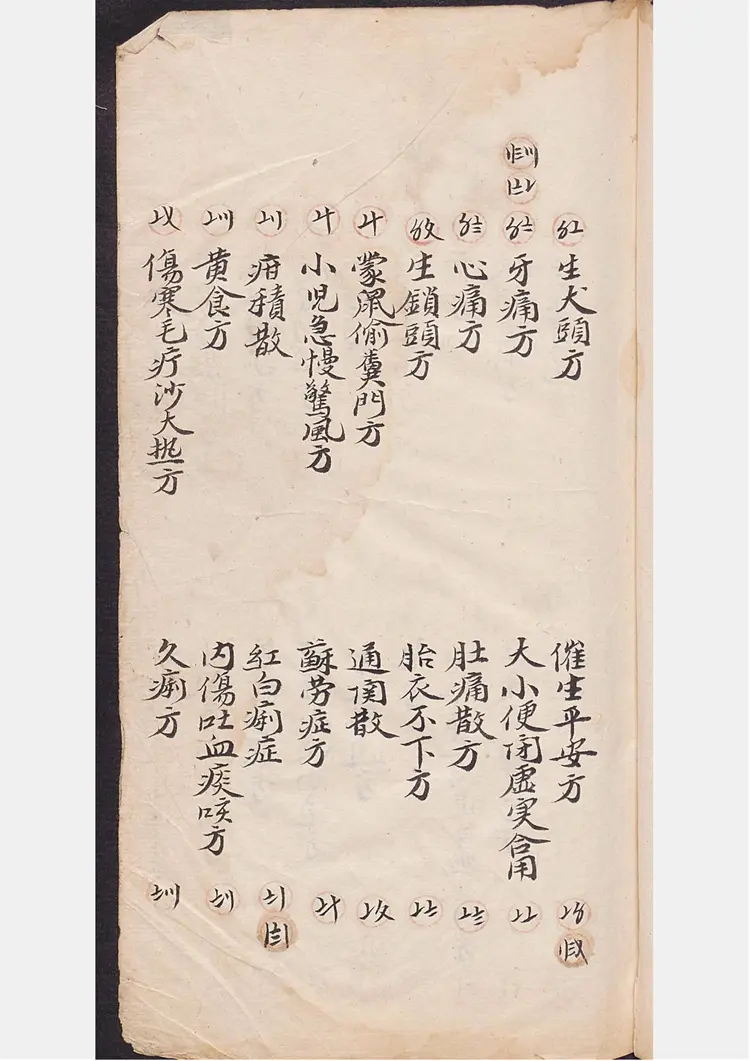 生犬頭方
牙痛方
心痛方
生鎖頭方
蒙鼠偷糞門方
小児急慢驚風方
疳積散
黄食方
傷寒毛疔沙大热方
催生平安方
大小便闭虛实合用
肚痛散方
胎衣不下方
通関散
蘇劳症方
紅白痢症
内傷吐血痰咳方
久痢方